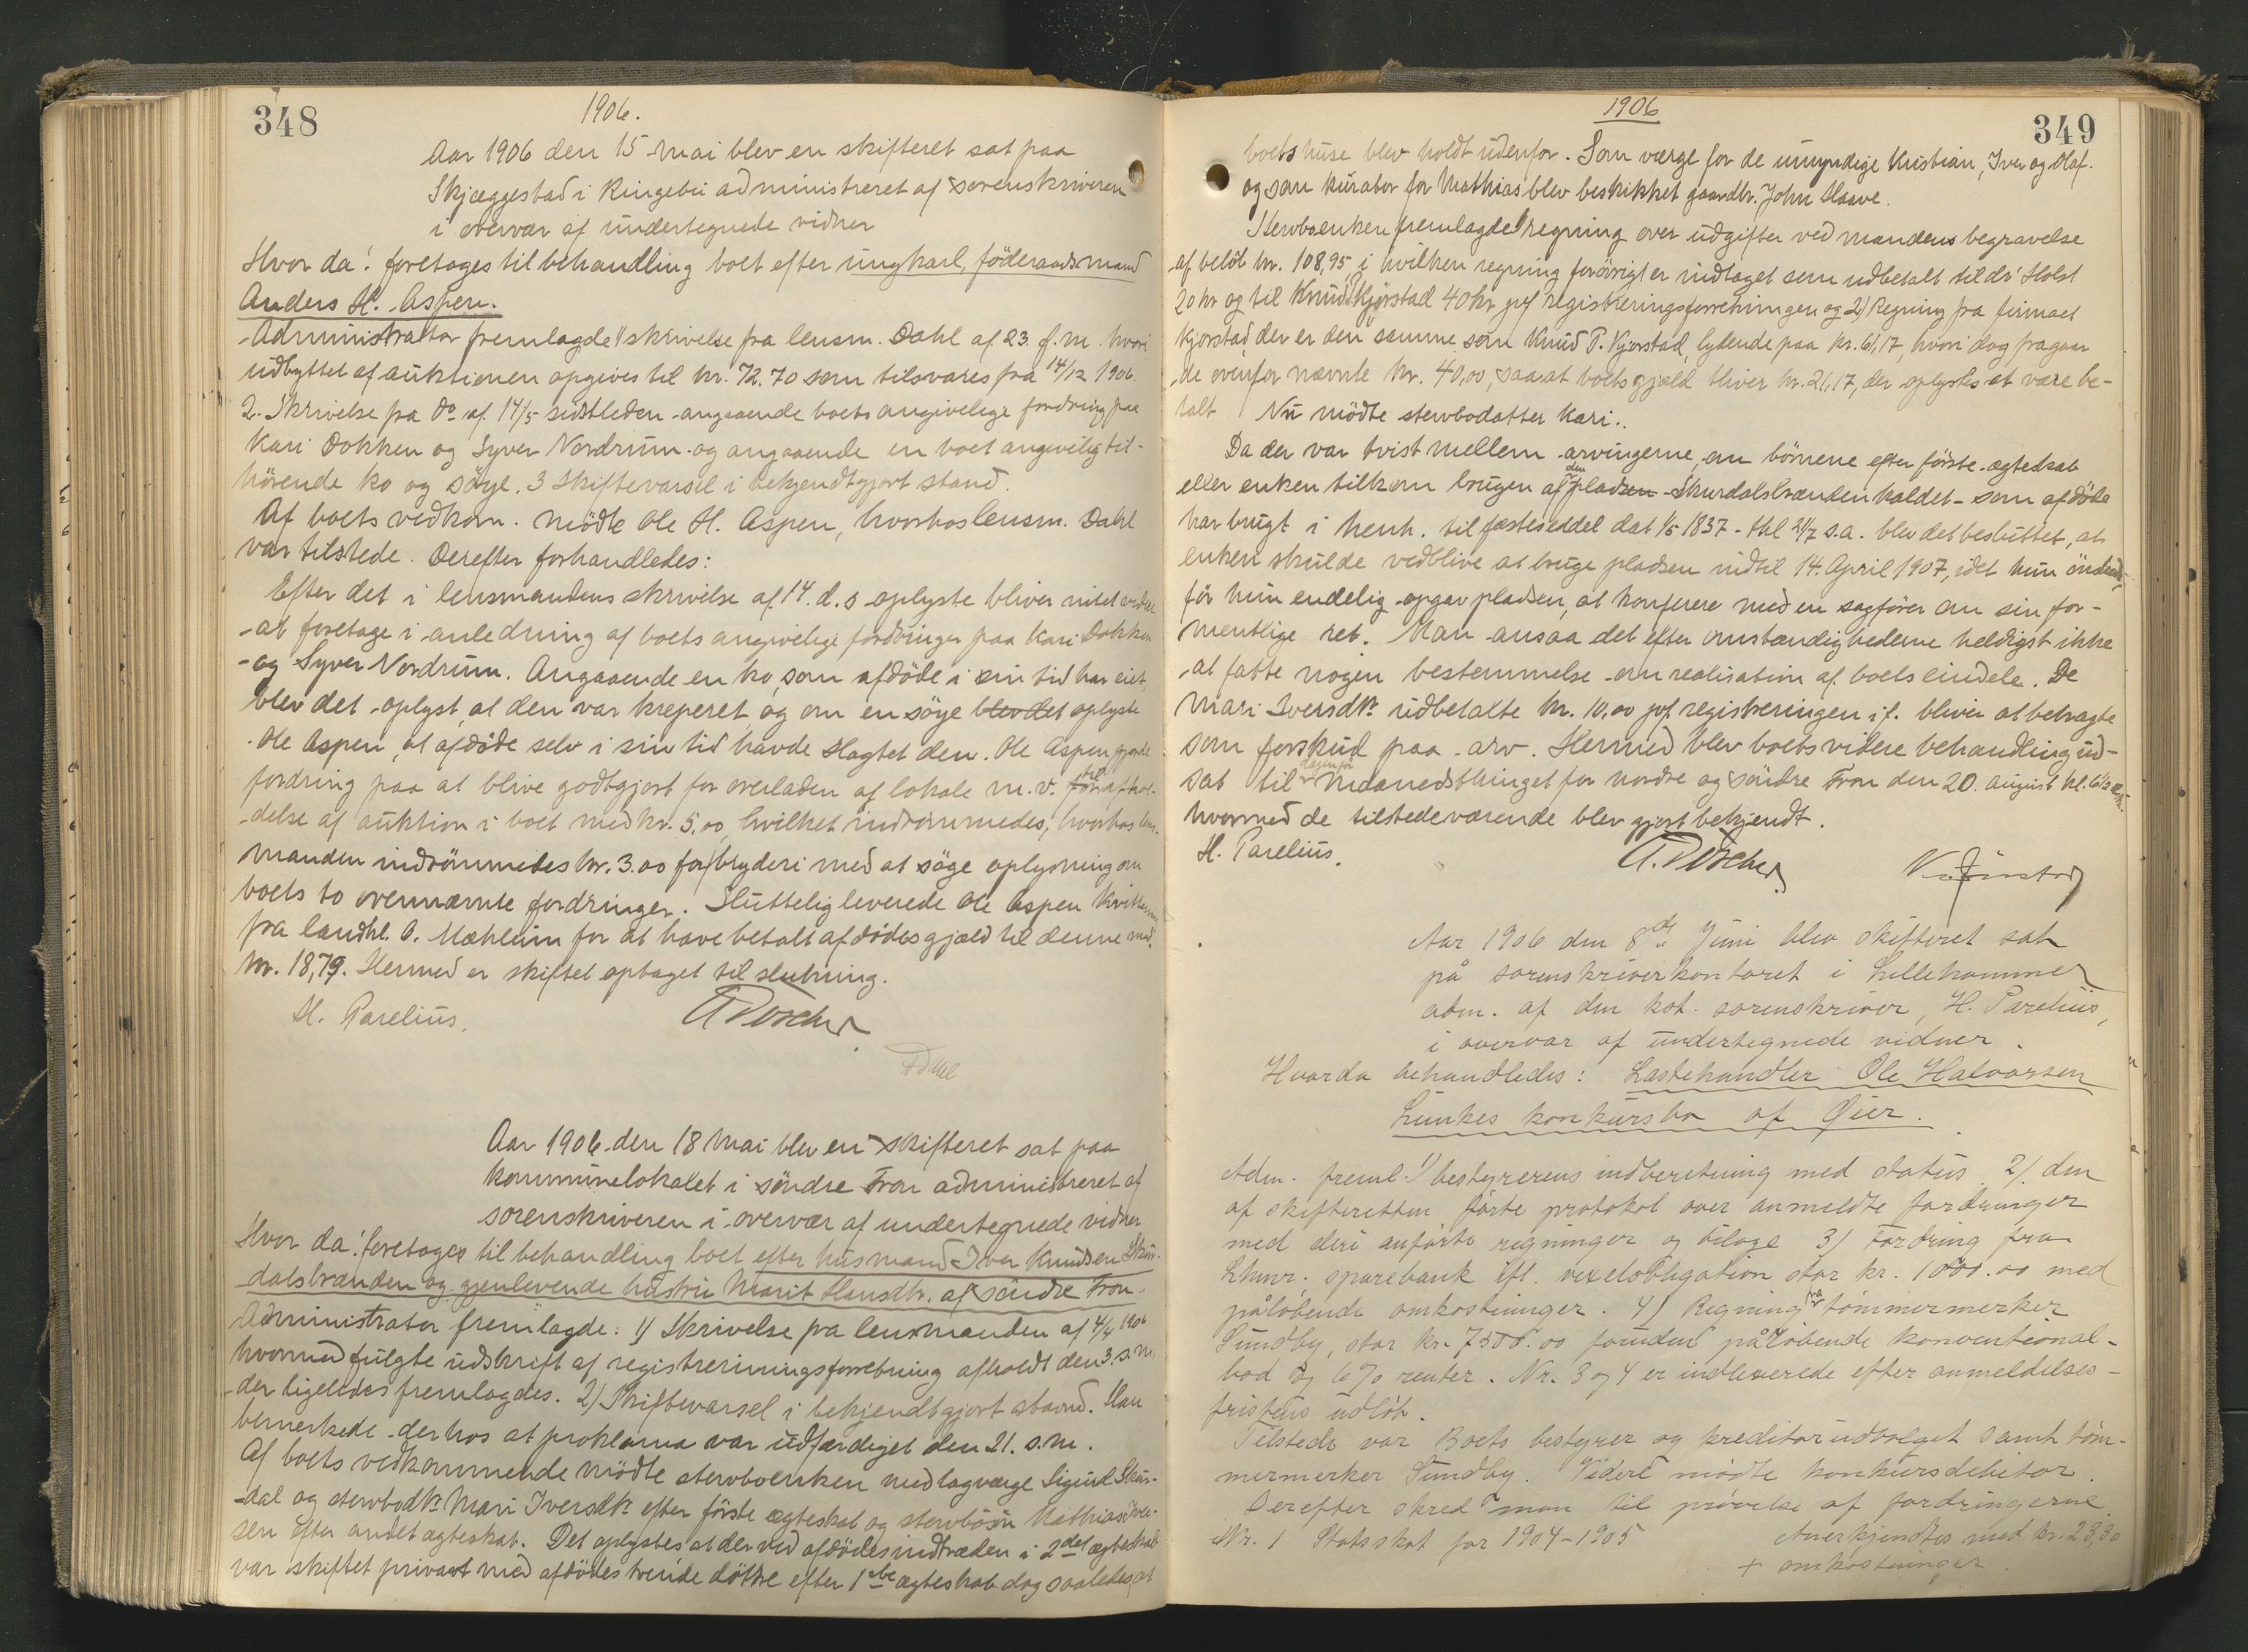 348
1906.
Aar 1906 den 15 mai blev en skifteret sat paa
Skjæggestad i Ringebu administreret af sorenskriveren
i overvær af undertegnede vidner
Hvor da! foretoges til behandling boet efter ungkarl, föderaadsmand
Anders H. Aspen.
Administrator fremlagde 1) skrivelse fra lensm. Dahl af 23. f.m. hvori
udbyttet af auktionen opgives til kr. 72.70 som tilsvares fra 14/12 1906.
2. Skrivelse fra do af 14/5 sidstleden angaaende boets angivelige fordring paa
Kari Dokken og Syver Nordrum og angaaende en boet angivelig til-
hörende ko og söye. 3 Skiftevarsel i bekjendtgjort stand.
Af boets vedkom. mödte Ole H. Aspen, hvorhos lensm. Dahl
var tilstede. Derefter forhandledes:
Efter det i lensmandens skrivelse af 14. d.s oplyste bliver intet videre
at foretage i anledning af boets angivelige fordringer paa Kari Dokken
og Syver Nordrum. Angaaende en ko, som afdöde i sin tid har eiet,
blev det oplyst, at den var kreperet og om en söye blev det oplyste
Ole Aspen, at afdöde selv i sin tid havde slagtet den. Ole Aspen gjorde
fordring paa at blive godtgjort for overladen af lokale m.v. for til afhol-
delse af auktion i boet med kr. 5,00, hvilket indrömmedes, hvorhos lens-
manden indrömmedes kr. 3.00 for bryderi med at söge oplysning om
boets to ovennævnte fordringer. Sluttelig leverede Ole Aspen kvittering
fra landhl. O. Mæhlum for at have betalt afdödes gjæld til denne med
kr. 18,79. Hermed er skiftet optaget til slutning.
H. Parelius.
Aar 1906 den 18 mai blev en skifteret sat paa
kommunelokalet i söndre Fron administreret af
sorenskriveren i overvær af undertegnede vidner
Hvor da! foretoges til behandling boet efter husmand Iver Knudsen Skur-
dalsbrænden og gjenlevende hustru Marit Hansdtr. af söndre Fron.
Administrator fremlagde: 1) Skrivelse fra lensmanden af 4/4 1906
hvormed fulgte udskrift af registreringsforretning afholdt den 3. s.m.
der ligeledes fremlagdes. 2) Skiftevarsel i bekjendtgjort stand. Han
bemerkede derhos at proklama var udfærdiget den 21. s.m.
Af boets vedkommende mödte stervboenken med lagværge Sigurd Skur-
dal og stervbodtr. Mari Iversdtr. efter förste ægteskab og stervbösön Mathias Iver-
sen efter andet ægteskab. Det oplystes at der ved afdödes indtræden i 2det ægteskab
var skiftet privat med afdödes trende döttre efter 1ste ægteskab dog saaledes, at
1906
349
boets huse blev holdt udenfor. Som værge for de umyndige Kristian, Iver og Olaf.
og som kurator for Mathias blev beskikket gaardbr. John Haave.
Stervboenken fremlagde 1) regning over udgifter ved mandens begravelse
af belöb kr. 108,95, i hvilken regning forövrigt er indtaget som udbetalt til dr. Holst
20 kr og til Knud Kjörstad 40 kr jvf registreringsforretningen og 2) Regning fra firmaet
Kjorstad der er den samme som Knud P. Kjorstad, lydende paa kr. 61,17, hvori dog fragaar
de ovenfor nævnte kr. 40,00, saaat boets gjæld bliver kr. 21,17, der oplystes at være be-
talt Nu mödte stervbodatter Kari.
Da der var tvist mellem arvingerne, om börnene efter förste ægteskab
eller enken tilkom brugen af den pladsen Skurdalsbrænden kaldet som afdöde
har brugt i henh. til fæsteseddel dat 1/5 1837 - thl 21/7 s.a. blev det besluttet, at
enken skulde vedblive at bruge pladsen indtil 14. April 1907, idet hun önskede
för hun endelig opgav pladsen, at konferere med en sagförer om sin for-
mentlige ret. Man ansaa det efter omstændighederne heldigst ikke
at fatte nogen bestemmelse om realisation af boets eiendele. De
Mari Iversdtr. udbetalte kr. 10,00 jvf. registreringen i.f. bliver at betragte
som forskud paa arv. Hermed blev boets videre behandling ud-
sat til dagen för maanedsthinget for nordre og söndre Fron den 20. august kl. 6 1/2
hvormed de tilstedeværende blev gjort bekjendt.
H. Parelius.
Aar 1906 den 8de Juni blev skifteret sat
på sorenskriverkontoret i Lillehammer
adm. af den kst. sorenskriver, H. Parelius,
i overvær af undertegnede vidner.
Hvorda behandledes: Lastehandler Ole Halvorsen
Lunkes konkursbo af Øier.
Adm. freml. 1) bestyrerens indberetning med status 2). den
af skifteretten förte protokol over anmeldte fordringer
med deri anförte regninger og bilage 3) Fordring fra
Lhmr. sparebank ifl. vexelobligation stor kr. 1000.00 med
påløbende omkostninger. 4) Regning fra tömmermerker
Sundby, stor kr. 7500.00 foruden påløbende konventional-
bod og 6% renter. Nr. 3 og 4 er indleverede efter anmeldelses-
fristens udløb.
Tilstede var Boets bestyrer og kreditorudvalget samt töm-
mermerker Sundby. Videre mødte konkursdebitor.
Derefter skred man til prövelse af fordringerne
Nr. 1 Statsskat for 1904-1905 Anerkjendtes med kr. 23,30
+ omkostninger